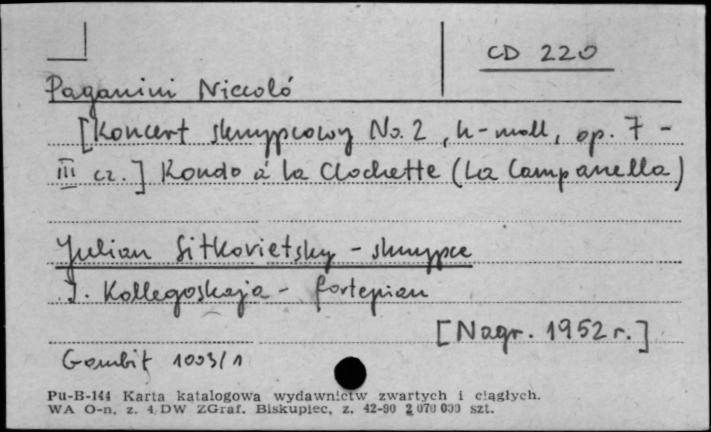 CD 220
Paganini Niccoló
[Koncert skrzypcowy No. 2, h-moll, op. 7 -
III cz.] Rondo á la Clochette (La Campanella)
Julian Sitkovietsky - skrzypce
I. Kollegoskaja - fortepian
[Nagr. 1952 r.]
Gambit 1003/1
Pu-B-144 Karta katalogowa wydawnictw zwartych i ciągłych.
WA O-n. z. 4 DW ZGraf. Biskupiec, z. 42-90 2 070 000 szt.